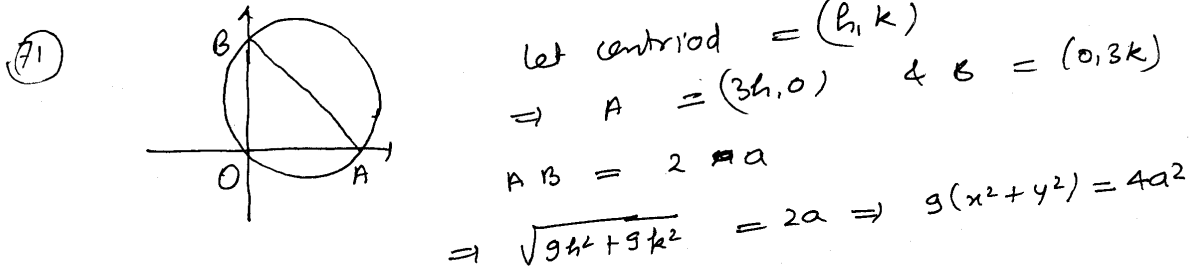 71
B
O
A
let centriod = (h, k)
⇒ A = (3h, 0) & B = (0, 3k)
AB = 2 a
⇒ √9h² + 9k² = 2a ⇒ 9(x² + y²) = 4a²